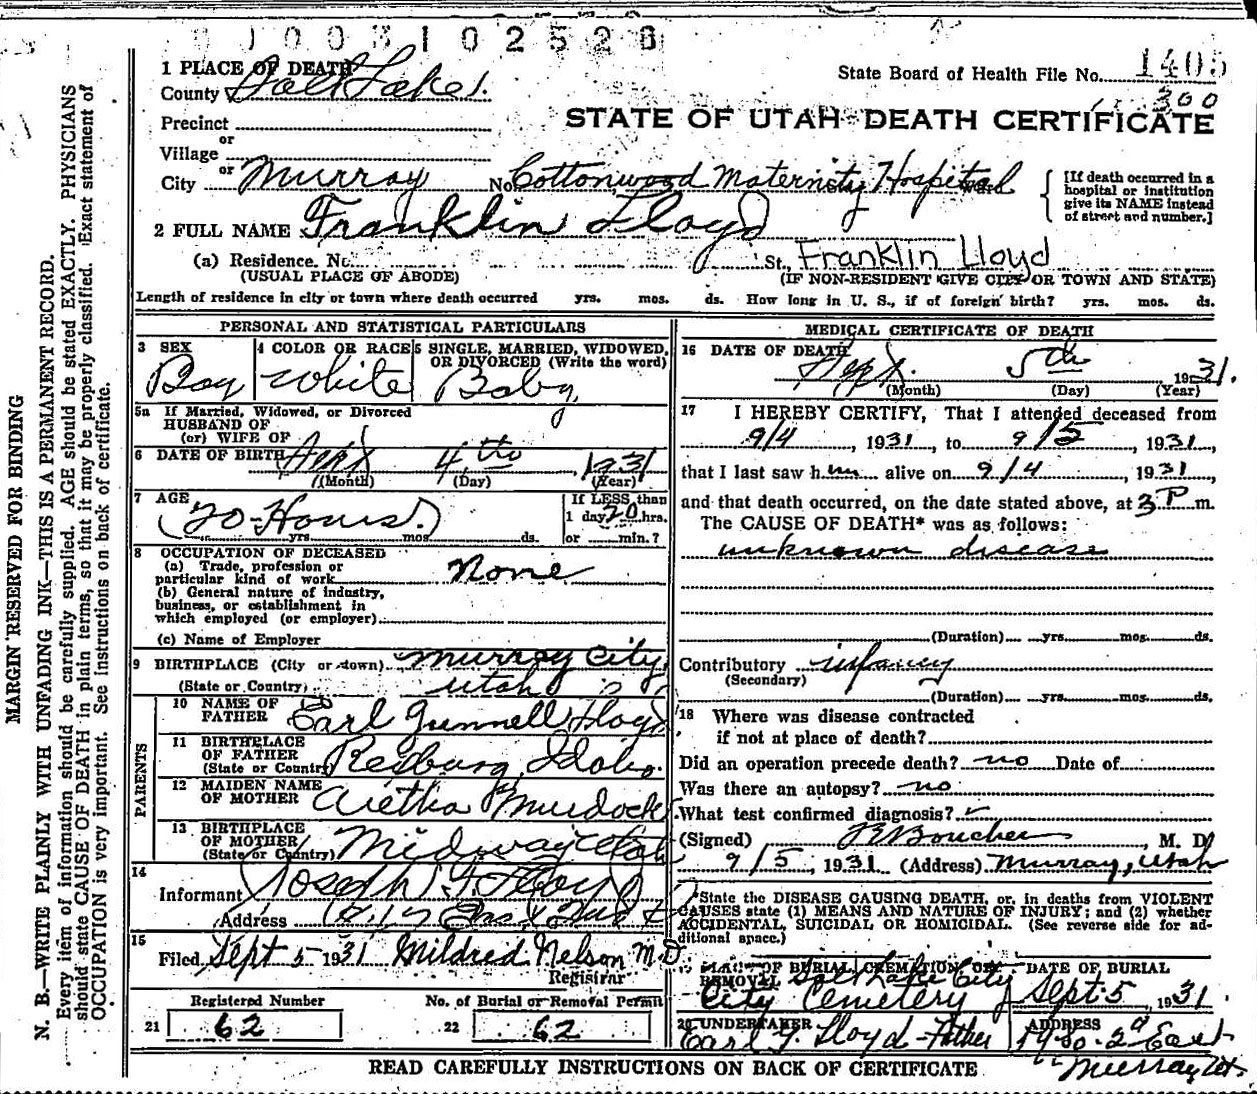 003102528
1 PLACE OF DEATH
County Salt Lake
State Board of Health File No. 1405
300
Precinct
or
Village
STATE OF UTAH-DEATH CERTIFICATE
or
City Murray No. Cottonwood Maternity Hospital
[If death occurred in a
hospital or institution
give its NAME instead
of street and number.]
2 FULL NAME Franklin Lloyd
(a) Residence. No. St., Franklin Lloyd
(USUAL PLACE OF ABODE) (IF NON-RESIDENT GIVE CITY OR TOWN AND STATE)
Length of residence in city or town where death occurred yrs. mos. ds. How long in U. S., if of foreign birth? yrs. mos. ds.
PERSONAL AND STATISTICAL PARTICULARS
3 SEX 4 COLOR OR RACE 5 SINGLE, MARRIED, WIDOWED,
OR DIVORCED (Write the word)
Boy White Baby
5a If Married, Widowed, or Divorced
HUSBAND OF
(or) WIFE OF
6 DATE OF BIRTH Sept 4th, 1931
(Month) (Day) (Year)
7 AGE
20-Hours.
yrs. mos. ds.
If LESS than
1 day 20 hrs.
or min.?
8 OCCUPATION OF DECEASED
(a) Trade, profession or
particular kind of work None
(b) General nature of industry,
business, or establishment in
which employed (or employer)
(c) Name of Employer
9 BIRTHPLACE (City or town) Murray City
(State or Country) Utah
PARENTS
10 NAME OF
FATHER Earl Gunnell Lloyd
11 BIRTHPLACE
OF FATHER
(State or Country) Rexburg, Idaho.
12 MAIDEN NAME
OF MOTHER Aretha Murdock
13 BIRTHPLACE
OF MOTHER
(State or Country) Midway Utah
14
Informant Joseph Lloyd
Address
15
Filed Sept 5 1931 Mildred Nelson M.D.
Registrar
Registered Number No. of Burial or Removal Permit
21 62 22 62
MEDICAL CERTIFICATE OF DEATH
16 DATE OF DEATH
Sept. 5th 1931.
(Month) (Day) (Year)
17 I HEREBY CERTIFY, That I attended deceased from
9/4, 1931, to 9/5, 1931,
that I last saw him alive on 9/4, 1931,
and that death occurred, on the date stated above, at 3 P m.
The CAUSE OF DEATH* was as follows:
unknown disease
(Duration) yrs. mos. ds.
Contributory infancy
(Secondary)
(Duration) yrs. mos. ds.
18 Where was disease contracted
if not at place of death?
Did an operation precede death? no Date of
Was there an autopsy? no
What test confirmed diagnosis?
(Signed) Boucher, M. D.
9/5, 1931 (Address) Murray, Utah
*State the DISEASE CAUSING DEATH, or, in deaths from VIOLENT
CAUSES state (1) MEANS AND NATURE OF INJURY; and (2) whether
ACCIDENTAL, SUICIDAL OR HOMICIDAL. (See reverse side for ad-
ditional space.)
PLACE OF BURIAL, CREMATION OR DATE OF BURIAL
REMOVAL Salt Lake City
City Cemetery Sept. 5, 1931.
20 UNDERTAKER ADDRESS
Earl G. Lloyd-Father 19 So. 2d East
Murray Ut.
READ CAREFULLY INSTRUCTIONS ON BACK OF CERTIFICATE
MARGIN RESERVED FOR BINDING
N. B.—WRITE PLAINLY WITH UNFADING INK—THIS IS A PERMANENT RECORD.
Every item of information should be carefully supplied. AGE should be stated EXACTLY. PHYSICIANS
should state CAUSE OF DEATH in plain terms, so that it may be properly classified. Exact statement of
OCCUPATION is very important. See instructions on back of certificate.